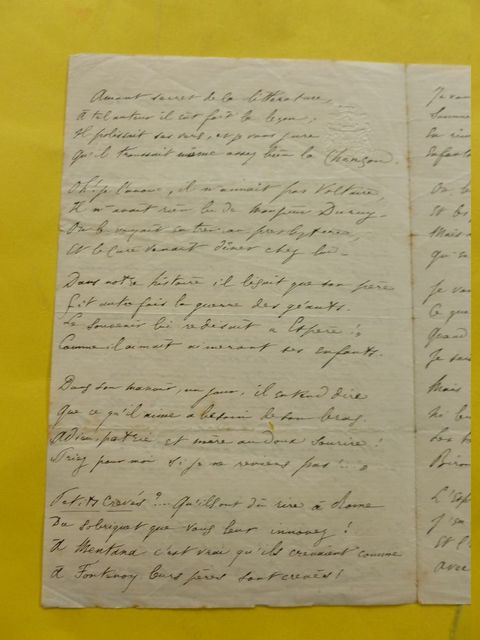 Amant secret de la littérature,
A tel auteur il eut fait la leçon,
Il polissait ses vers, et je vous jure
Qu'il troussait même assez bien la Chanson.
Oh! je l'avoue, il n'aimait pas Voltaire,
Il n'avait rien lu de Monsieur Duruy.
On le voyait entrer au presbytère,
Et le Curé venait dîner chez lui.
Dans notre histoire il lisait que son père
Fit autrefois la guerre des géants.
Le souvenir lui redisait : Espère !
Comme il aimait aimeront ses enfants.
Dans son manoir, un jour, il entend dire
Que ce qu'il aime a besoin de son bras.
Adieu patrie, et mère au doux sourire !
Priez pour moi si je ne reviens pas !
Petits Crevés ?... Qu'ils ont dû rire à Rome
Du sobriquet que vous leur
A Mentana c'est vrai qu'ils crevaient comme
A Fontenoy leurs pères sont crevés !
Je
Et les
Mais
Je
Ce que
Quand
Je
Mais
Ni
J'en
Et
avec